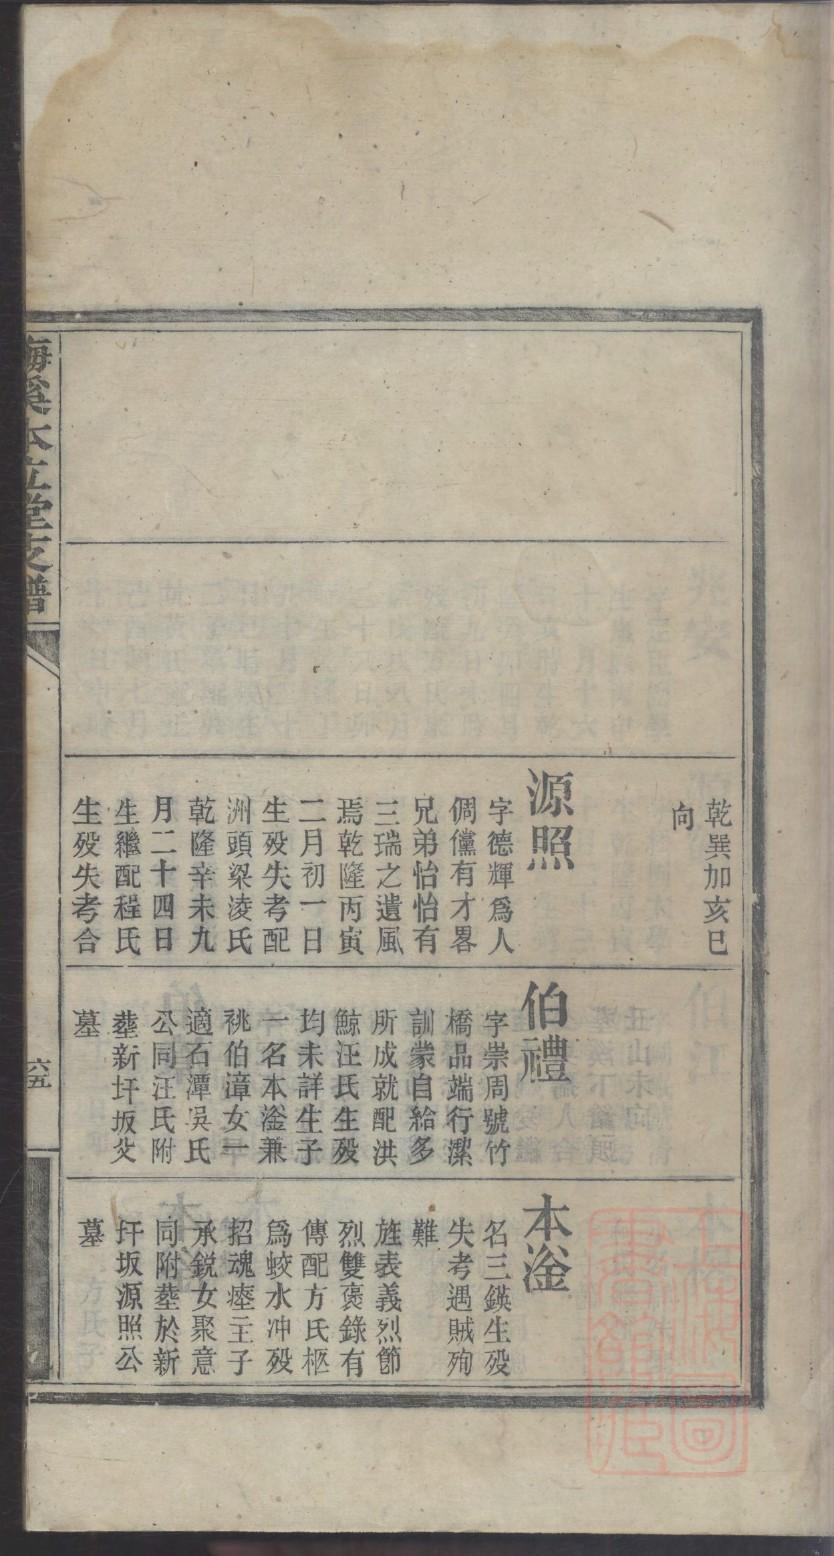 乾巽加亥巳
向
源照
字德輝爲人
倜儻有才畧
兄弟怡怡有
三瑞之遺風
焉乾隆丙寅
二月初一日
生殁失考配
洲頭梁凌氏
乾隆辛未九
月二十四日
生繼配程氏
生殁失考合
伯禮
字崇周號竹
橋品端行潔
訓蒙自給多
所成就配洪
鯨汪氏生殁
均未詳生子
一名本滏兼
祧伯漳女一
適石潭吳氏
公同汪氏附
塟新圩坂父
墓
本滏
名三鍈生殁
失考遇賊殉
難
旌表義烈節
烈雙褒錄有
傳配方氏柩
爲蛟水冲殁
招魂瘞主子
承銳女聚意
同附塟於新
圩坂源照公
墓
梅溪本立堂支譜
六五